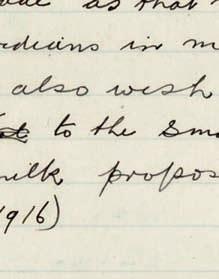 as that
in m
also wish
to the Sma
milk propos
1916)